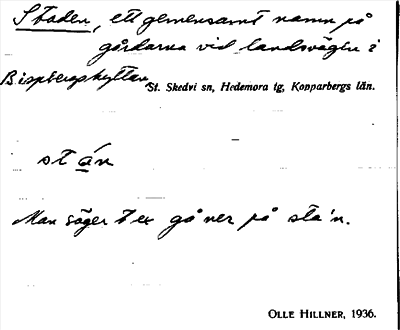 Staden, ett gemensamt namn på
gårdarna vid landsvägen i
Bispbergshyttan,
St. Skedvi sn, Hedemora tg, Kopparbergs län.
stán
Man säger t ex gå ner på sta'n.
OLLE HILLNER, 1936.